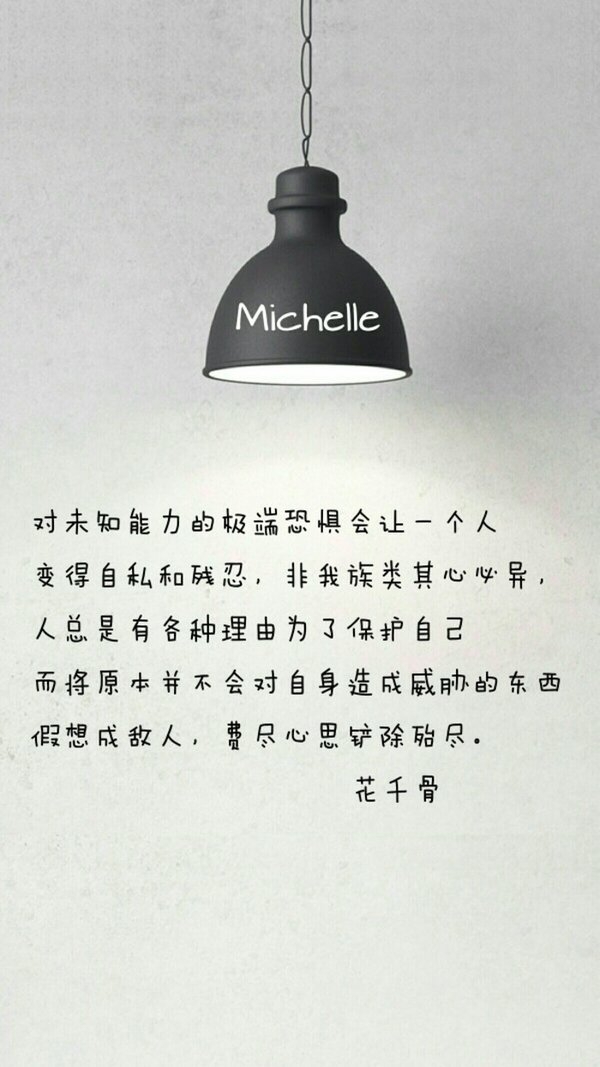 Michelle
对未知能力的极端恐惧会让一个人
变得自私和残忍，非我族类其心必异，
人总是有各种理由为了保护自己
而将原本并不会对自身造成威胁的东西
假想成敌人，费尽心思铲除殆尽。
花千骨